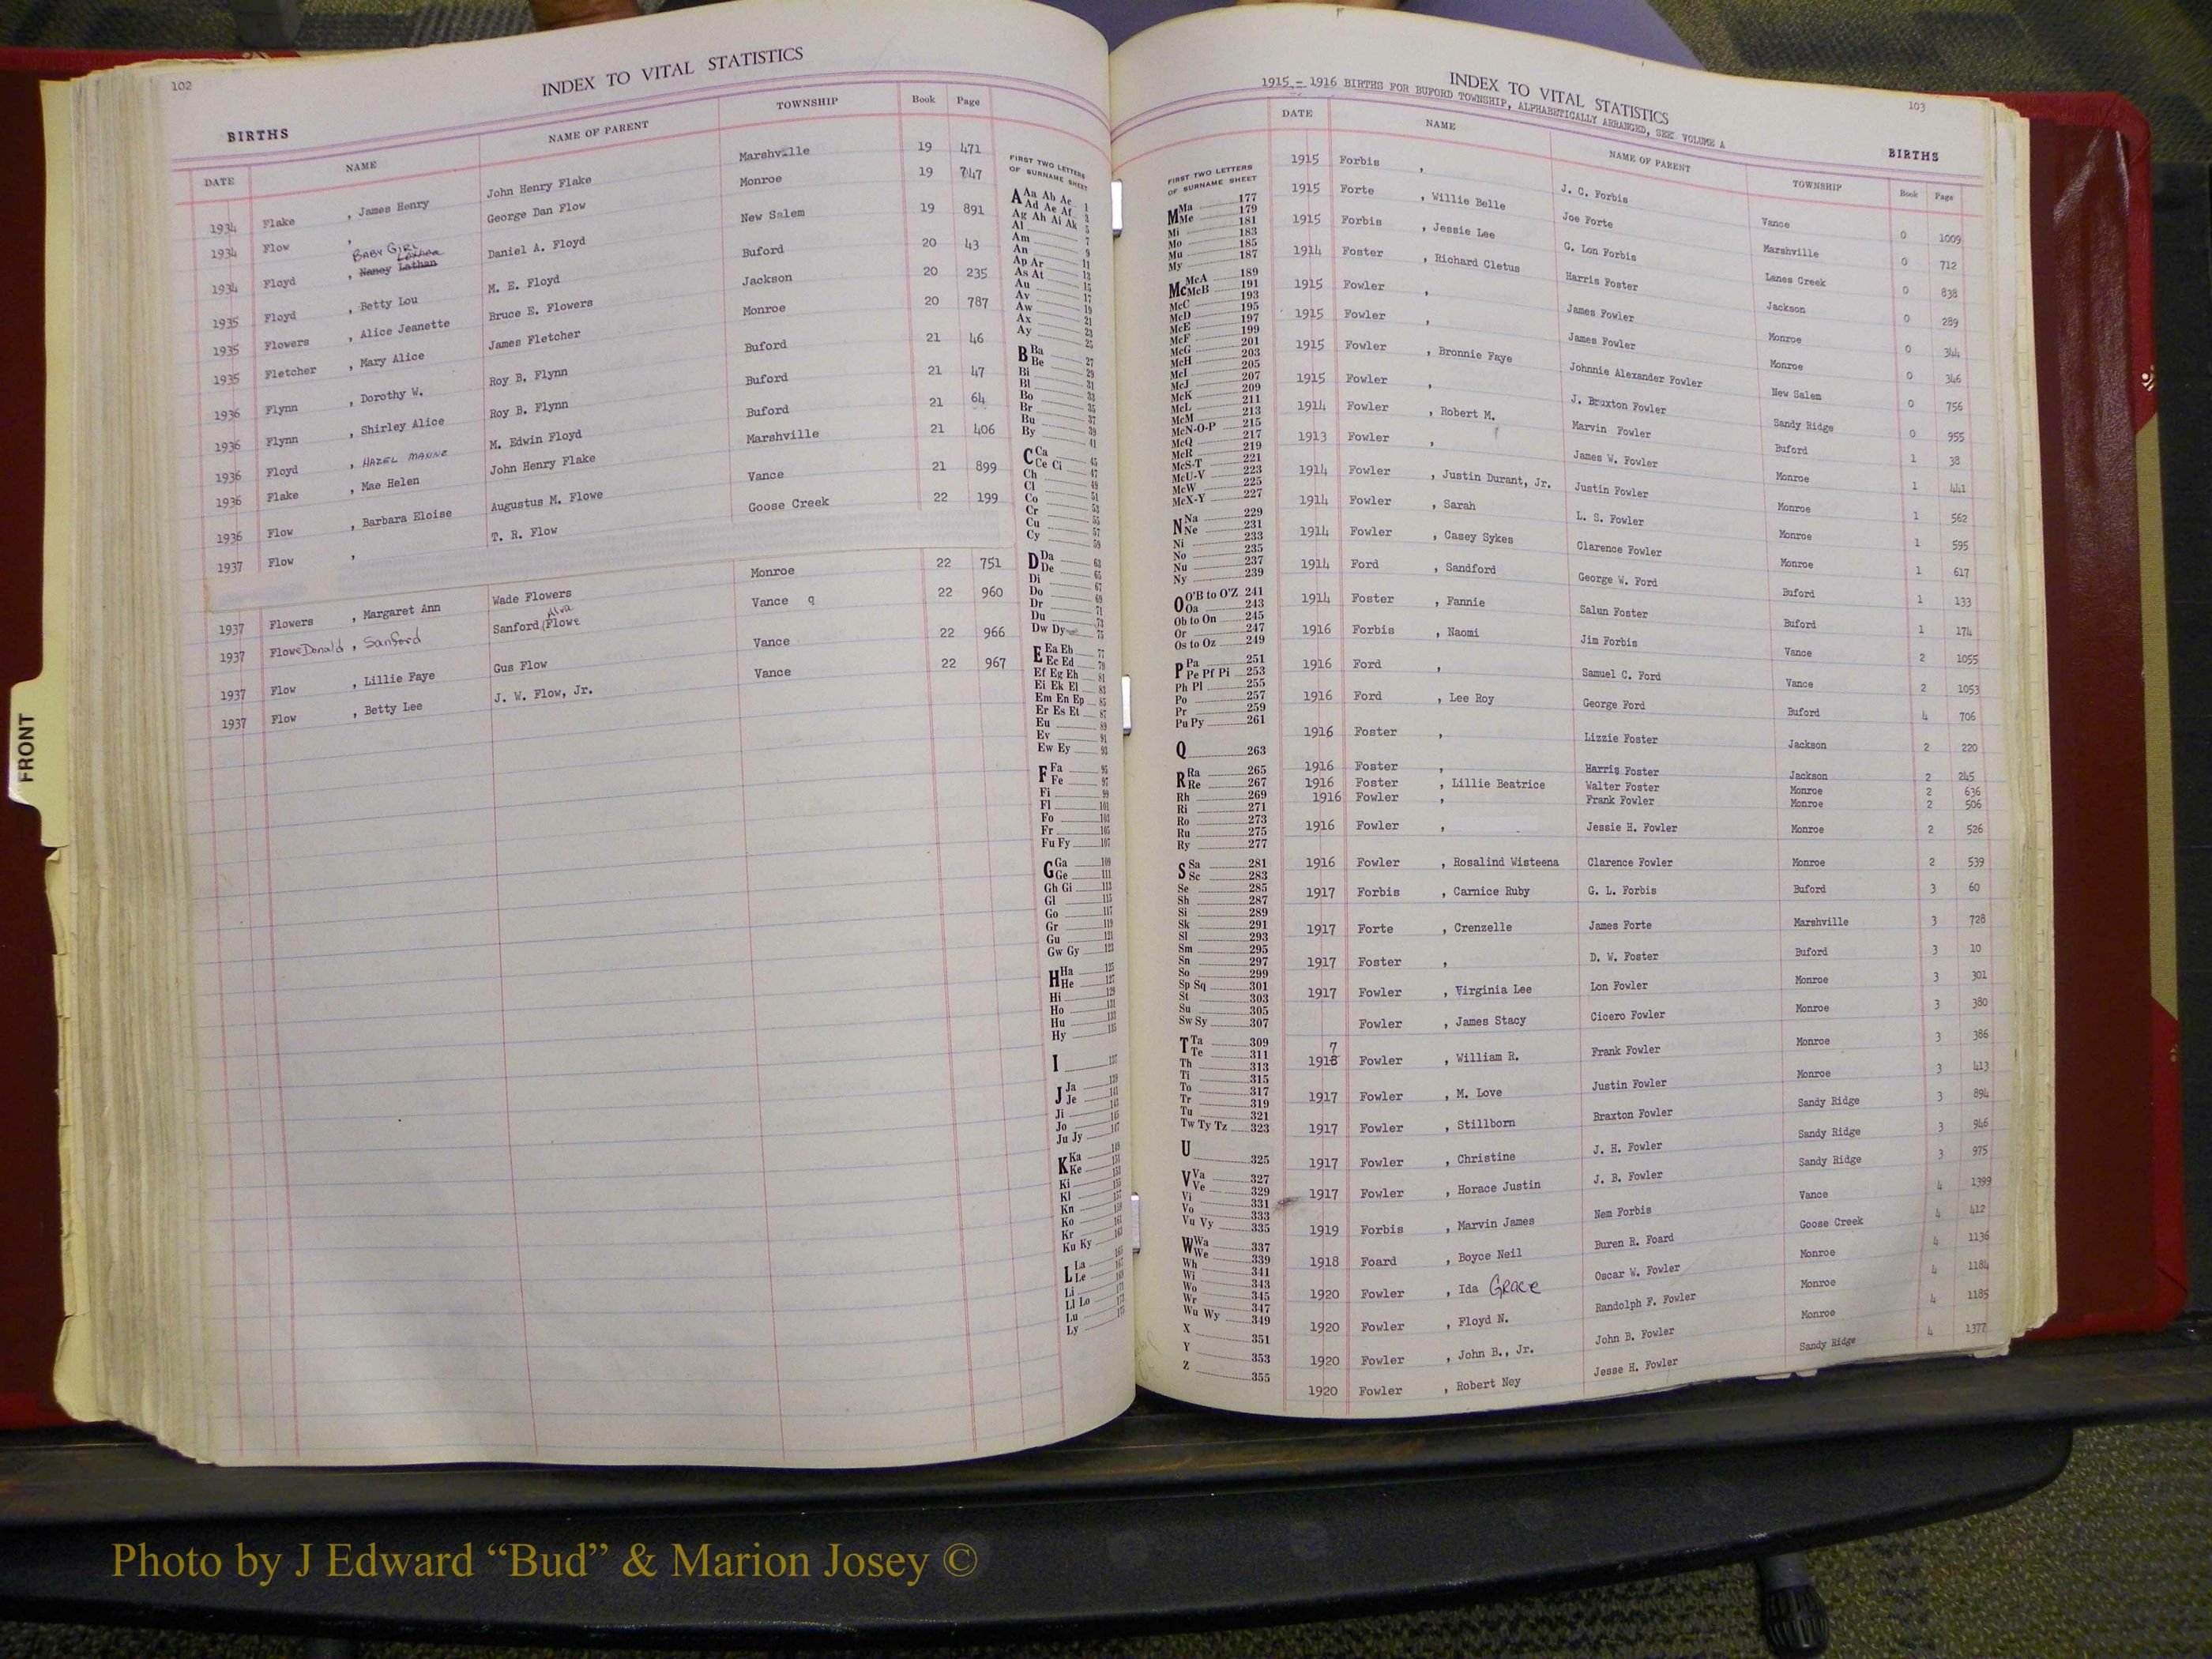 102
INDEX TO VITAL STATISTICS
BIRTHS
DATE NAME NAME OF PARENT TOWNSHIP Book Page
1934 Flake , James Henry John Henry Flake Marshville 19 471
1934 Flow , BABY GIRL George Dan Flow Monroe 19 747
1934 Floyd , Nancy Lathan Daniel A. Floyd New Salem 19 891
1935 Floyd , Betty Lou M. E. Floyd Buford 20 43
1935 Flowers , Alice Jeanette Bruce E. Flowers Jackson 20 235
1935 Fletcher , Mary Alice James Fletcher Monroe 20 787
1936 Flynn , Dorothy W. Roy B. Flynn Buford 21 46
1936 Flynn , Shirley Alice Roy B. Flynn Buford 21 47
1936 Floyd , HAZEL MAXINE M. Edwin Floyd Buford 21 64
1936 Flake , Mae Helen John Henry Flake Marshville 21 406
1936 Flow , Barbara Eloise Augustus M. Flowe Vance 21 899
1937 Flow , T. R. Flow Goose Creek 22 199
1937 Flowers , Margaret Ann Wade Flowers Monroe 22 751
1937 Flowe Donald , Sanford Sanford Alva Flowe Vance q 22 960
1937 Flow , Lillie Faye Gus Flow Vance 22 966
1937 Flow , Betty Lee J. W. Flow, Jr. Vance 22 967
FIRST TWO LETTERS
OF SURNAME SHEET
A Aa Ab Ac 1
Ad Ae Af 3
Ag Ah Ai Ak 5
Al 7
Am 9
An 11
Ap Ar 13
As At 15
Au 17
Av 19
Aw 21
Ax 23
Ay 25
B Ba 27
Be 29
Bi 31
Bl 33
Bo 35
Br 37
Bu 39
By 41
C Ca 45
Ce Ci 47
Ch 49
Cl 51
Co 53
Cr 55
Cu 57
Cy 59
D Da 63
De 65
Di 67
Do 69
Dr 71
Du 73
Dw Dy 75
E Ea Eb 77
Ec Ed 79
Ef Eg Eh 81
Ei Ek El 83
Em En Ep 85
Er Es Et 87
Eu 89
Ev 91
Ew Ey 93
F Fa 95
Fe 97
Fi 99
Fl 101
Fo 103
Fr 105
Fu Fy 107
G Ga 109
Ge 111
Gh Gi 113
Gl 115
Go 117
Gr 119
Gu 121
Gw Gy 123
H Ha 125
He 127
Hi 129
Ho 131
Hu 133
Hy 135
I 137
J Ja 139
Je 141
Ji 143
Jo 145
Ju Jy 147
K Ka 149
Ke 151
Ki 153
Kl 155
Kn 157
Ko 159
Kr 161
Ku Ky 163
L La 165
Le 167
Li 169
Ll Lo 171
Lu 173
Ly 175
FRONT
INDEX TO VITAL STATISTICS
103
1915 - 1916 BIRTHS FOR BUFORD TOWNSHIP, ALPHABETICALLY ARRANGED, SEE VOLUME A
BIRTHS
FIRST TWO LETTERS
OF SURNAME SHEET
M Ma 177
Me 179
Mi 181
Mo 183
Mu 185
My 187
Mc McA 189
McB 191
McC 193
McD 195
McE 197
McF 199
McG 201
McH 203
McI 205
McJ 207
McK 209
McL 211
McM 213
McN-O-P 215
McQ 217
McR 219
McS-T 221
McU-V 223
McW 225
McX-Y 227
N Na 229
Ne 231
Ni 233
No 235
Nu 237
Ny 239
O O'B to O'Z 241
Oa 243
Ob to On 245
Or 247
Os to Oz 249
P Pa 251
Pe Pf Pi 253
Ph Pl 255
Po 257
Pr 259
Pu Py 261
Q 263
R Ra 265
Re 267
Rh 269
Ri 271
Ro 273
Ru 275
Ry 277
S Sa 281
Sc 283
Se 285
Sh 287
Si 289
Sk 291
Sl 293
Sm 295
Sn 297
So 299
Sp Sq 301
St 303
Su 305
Sw Sy 307
T Ta 309
Te 311
Th 313
Ti 315
To 317
Tr 319
Tu 321
Tw Ty Tz 323
U 325
V Va 327
Ve 329
Vi 331
Vo 333
Vu Vy 335
W Wa 337
We 339
Wh 341
Wi 343
Wo 345
Wr 347
Wu Wy 349
X 351
Y 353
Z 355
DATE NAME NAME OF PARENT TOWNSHIP Book Page
1915 Forbis , J. C. Forbis Vance 0 1009
1915 Forte , Willie Belle Joe Forte Marshville 0 712
1915 Forbis , Jessie Lee G. Lon Forbis Lanes Creek 0 838
1914 Foster , Richard Cletus Harris Foster Jackson 0 289
1915 Fowler , James Fowler Monroe 0 344
1915 Fowler , James Fowler Monroe 0 346
1915 Fowler , Bronnie Faye Johnnie Alexander Fowler New Salem 0 756
1915 Fowler , J. Bruxton Fowler Sandy Ridge 0 955
1914 Fowler , Robert M. Marvin Fowler Buford 1 38
1913 Fowler , James W. Fowler Monroe 1 441
1914 Fowler , Justin Durant, Jr. Justin Fowler Monroe 1 562
1914 Fowler , Sarah L. S. Fowler Monroe 1 595
1914 Fowler , Casey Sykes Clarence Fowler Monroe 1 617
1914 Ford , Sandford George W. Ford Buford 1 133
1914 Foster , Fannie Salun Foster Buford 1 174
1916 Forbis , Naomi Jim Forbis Vance 2 1055
1916 Ford , Samuel C. Ford Vance 2 1053
1916 Ford , Lee Roy George Ford Buford 4 706
1916 Foster , Lizzie Foster Jackson 2 220
1916 Foster , Harris Foster Jackson 2 245
1916 Foster , Lillie Beatrice Walter Foster Monroe 2 636
1916 Fowler , Frank Fowler Monroe 2 506
1916 Fowler , Jessie H. Fowler Monroe 2 526
1916 Fowler , Rosalind Wisteena Clarence Fowler Monroe 2 539
1917 Forbis , Carnice Ruby G. L. Forbis Buford 3 60
1917 Forte , Crenzelle James Forte Marshville 3 728
1917 Foster , D. W. Foster Buford 3 10
1917 Fowler , Virginia Lee Lon Fowler Monroe 3 301
Fowler , James Stacy Cicero Fowler Monroe 3 380
7
1918 Fowler , William R. Frank Fowler Monroe 3 386
1917 Fowler , M. Love Justin Fowler Monroe 3 413
1917 Fowler , Stillborn Braxton Fowler Sandy Ridge 3 894
1917 Fowler , Christine J. H. Fowler Sandy Ridge 3 946
1917 Fowler , Horace Justin J. B. Fowler Sandy Ridge 3 975
1919 Forbis , Marvin James Nem Forbis Vance 4 1399
1918 Foard , Boyce Neil Buren R. Foard Goose Creek 4 412
1920 Fowler , Ida Grace Oscar W. Fowler Monroe 4 1136
1920 Fowler , Floyd N. Randolph F. Fowler Monroe 4 1184
1920 Fowler , John B., Jr. John B. Fowler Monroe 4 1185
1920 Fowler , Robert Ney Jesse H. Fowler Sandy Ridge 4 1377
Photo by J Edward “Bud” & Marion Josey ©